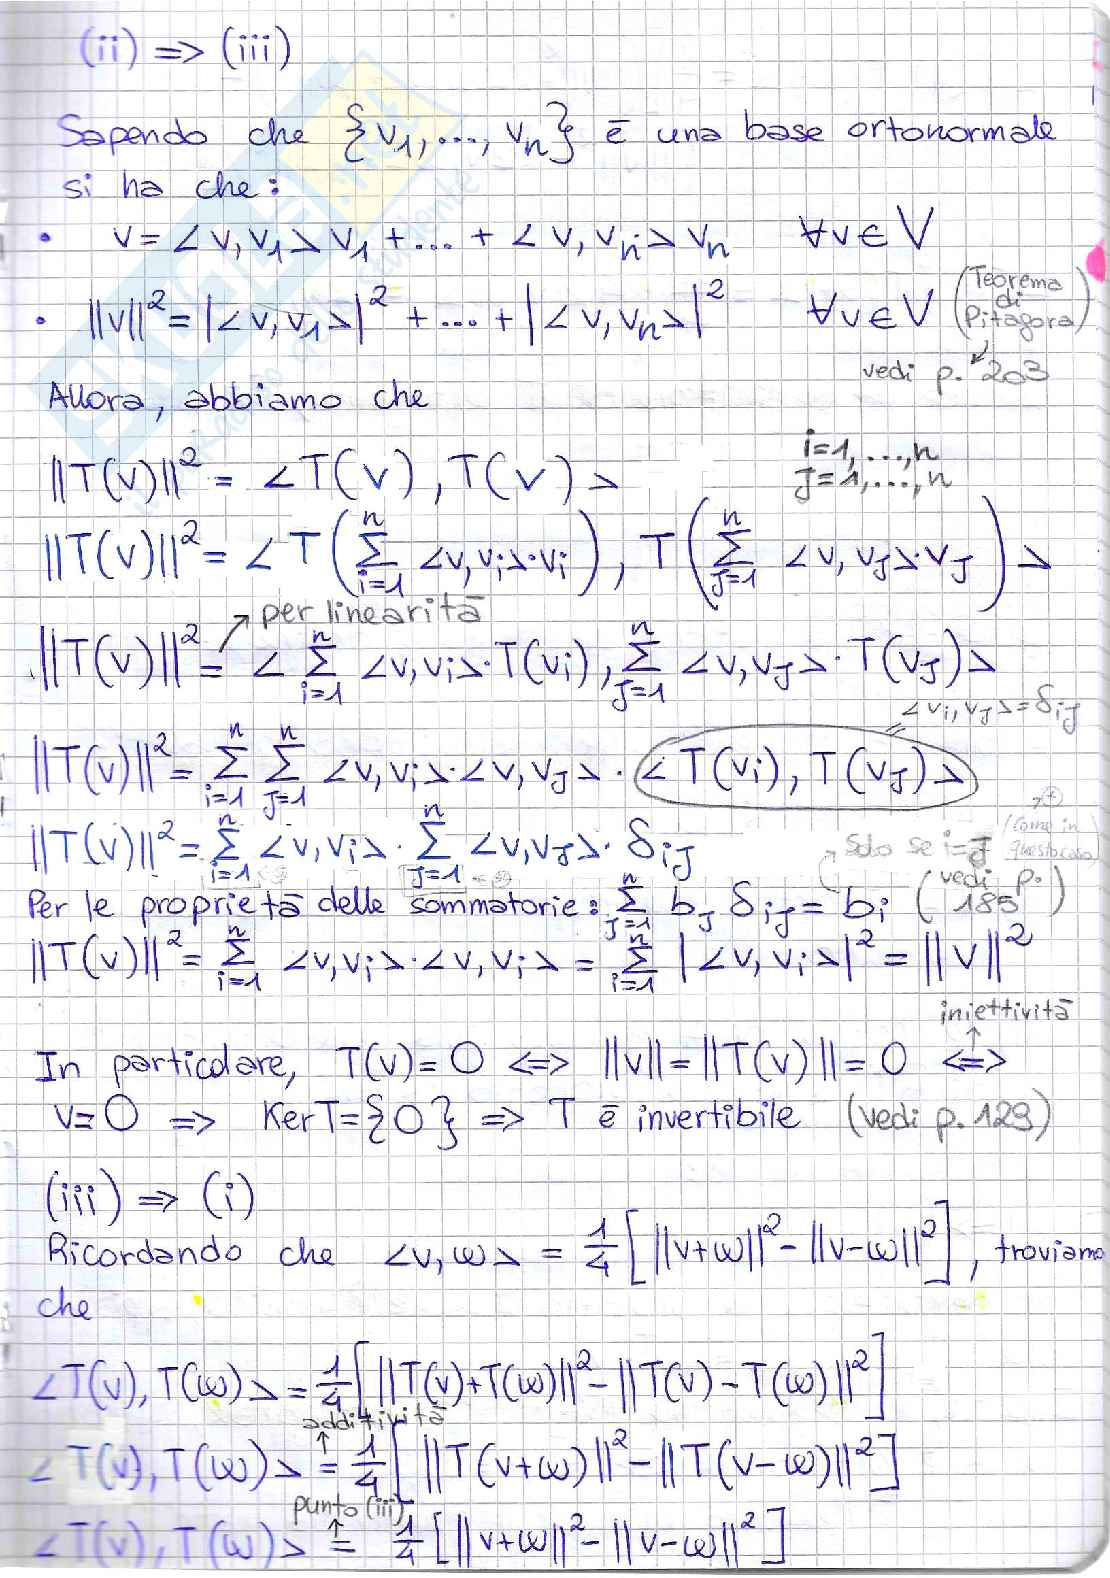 (ii) => (iii)
Sapendo che {v₁,..., vₙ} è una base ortonormale
si ha che:
• v = <v,v₁>v₁ +...+ <v,vₙ>vₙ ∀v∈V
• ||v||² = |<v,v₁>|² +...+ |<v,vₙ>|² ∀v∈V (Teorema di Pitagora)
vedi p. 203
Allora, abbiamo che
i=1,...,n
J=1,...,n
||T(v)||² = <T(v), T(v)>
||T(v)||² = <T(∑ⁿᵢ₌₁ <v,vᵢ>·vᵢ), T(∑ⁿ_J=1 <v,v_J>·v_J)>
per linearità
||T(v)||² = <∑ⁿᵢ₌₁ <v,vᵢ>·T(vᵢ), ∑ⁿ_J=1 <v,v_J>·T(v_J)>
<vᵢ,v_J> = δ_iJ
||T(v)||² = ∑ⁿᵢ₌₁ ∑ⁿ_J=1 <v,vᵢ>·<v,v_J>·<T(vᵢ), T(v_J)>
||T(v)||² = ∑ⁿᵢ₌₁ <v,vᵢ>·∑ⁿ_J=1 <v,v_J>·δ_iJ
Solo se i=J (come in questo caso)
Per le proprietà delle sommatorie: ∑ⁿ_J=1 b_J δ_iJ = bᵢ (vedi p. 185)
||T(v)||² = ∑ⁿᵢ₌₁ <v,vᵢ>·<v,vᵢ> = ∑ⁿᵢ₌₁ |<v,vᵢ>|² = ||v||²
iniettività
In particolare, T(v)=0 <=> ||v||=||T(v)||=0 <=>
v=0 => KerT={0} => T è invertibile (vedi p. 129)
(iii) => (i)
Ricordando che <v,ω> = 1/4 [||v+ω||² - ||v-ω||²], troviamo
che
<T(v),T(ω)> = 1/4 [||T(v)+T(ω)||² - ||T(v)-T(ω)||²]
additività
<T(v),T(ω)> = 1/4 [||T(v+ω)||² - ||T(v-ω)||²]
punto (iii)
<T(v),T(ω)> = 1/4 [||v+ω||² - ||v-ω||²]